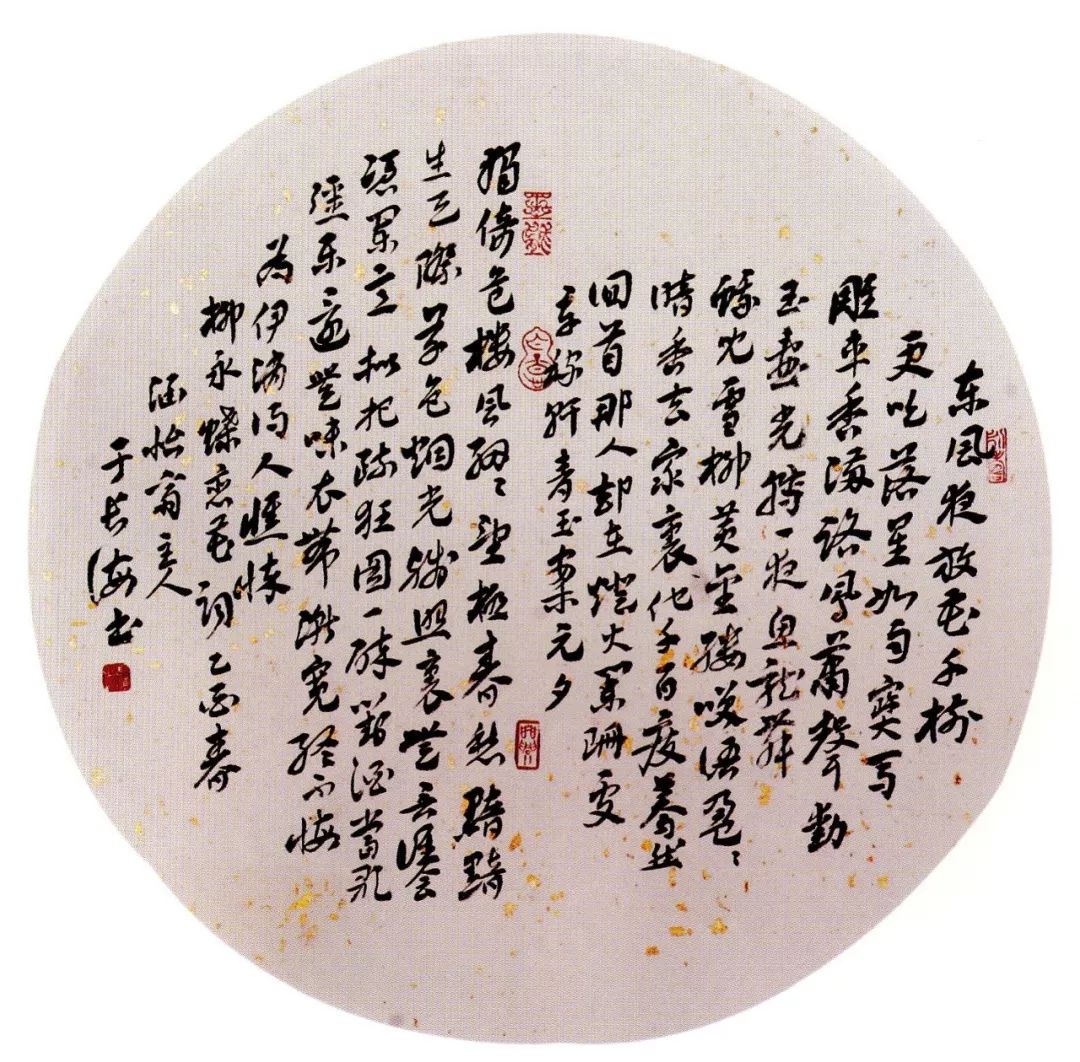 东风夜放花千树
更吹落星如雨寶马
雕车香满路凤萧声動
玉壶光转一夜鱼龙舞
蛾儿雪柳黄金缕笑语盈〻
暗香去众裏他千百度蓦然
回首那人却在燈火阑珊处
辛稼轩青玉案元夕
獨倚危楼风细〻望极春愁黯黯
生天际草色烟光残照裏無言谁会
凭阑意拟把疏狂图一醉對酒當歌
强乐还無味衣带渐宽终不悔
为伊消得人憔悴
柳永蝶恋花词乙酉春
涵怡斋主人
于长海书